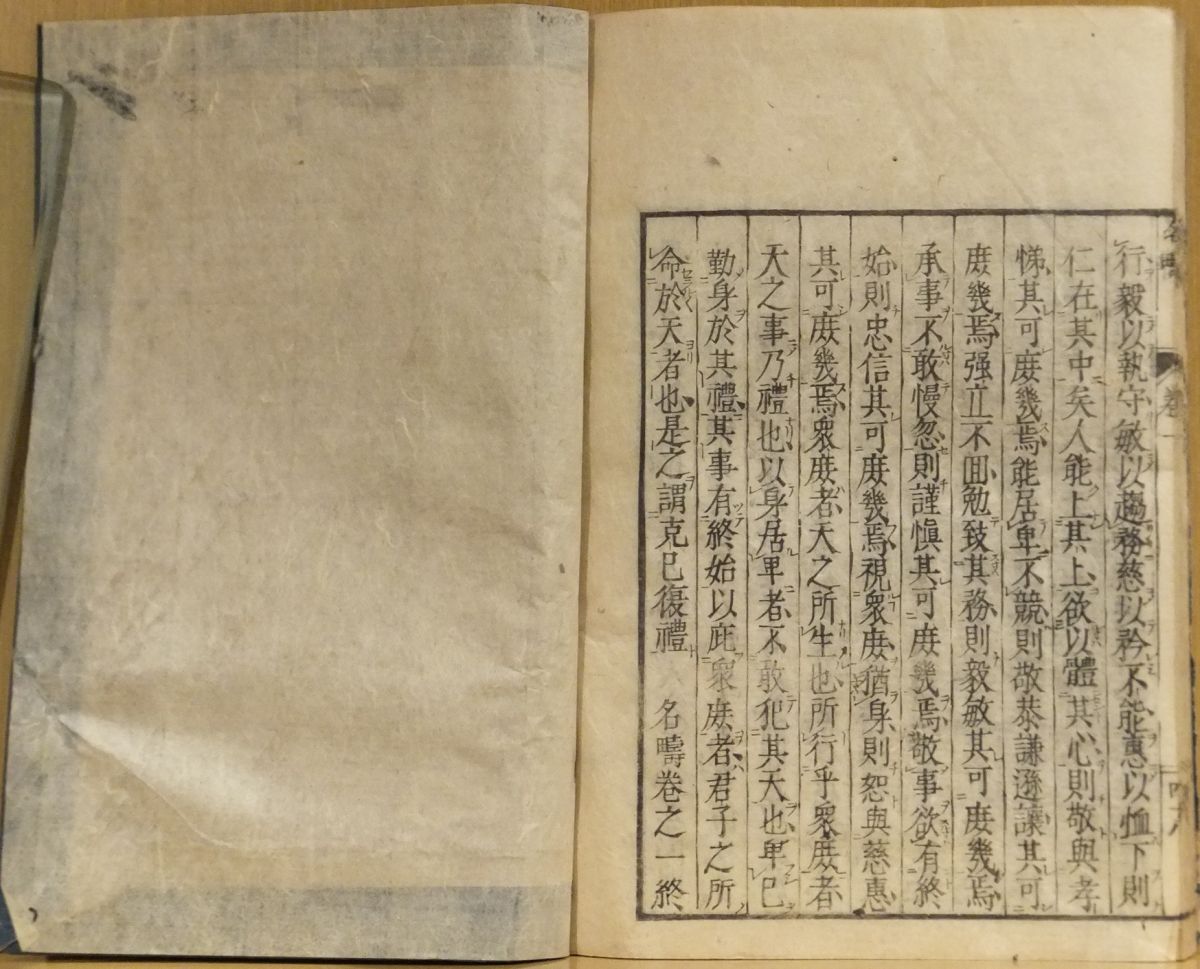 行毅以執守敏以趨務慈以矜不能惠以恤下則
仁在其中矣人能上其上欲以體其心則敬與孝
悌其可庶幾焉能居卑不競則敬恭謙遜讓其可
庶幾焉强立不回勉致其務則毅敏其可庶幾焉
承事不敢慢忽則謹愼其可庶幾焉敬事欲有終
始則忠信其可庶幾焉視衆庶猶身則恕與慈惠
其可庶幾焉衆庶者天之所生也所行乎衆庶者
天之事乃禮也以身居卑者不敢犯其天也卑已
勤身於其禮其事有終始以庇衆庶者君子之所
命於天者也是之謂克已復禮 名疇卷之一終